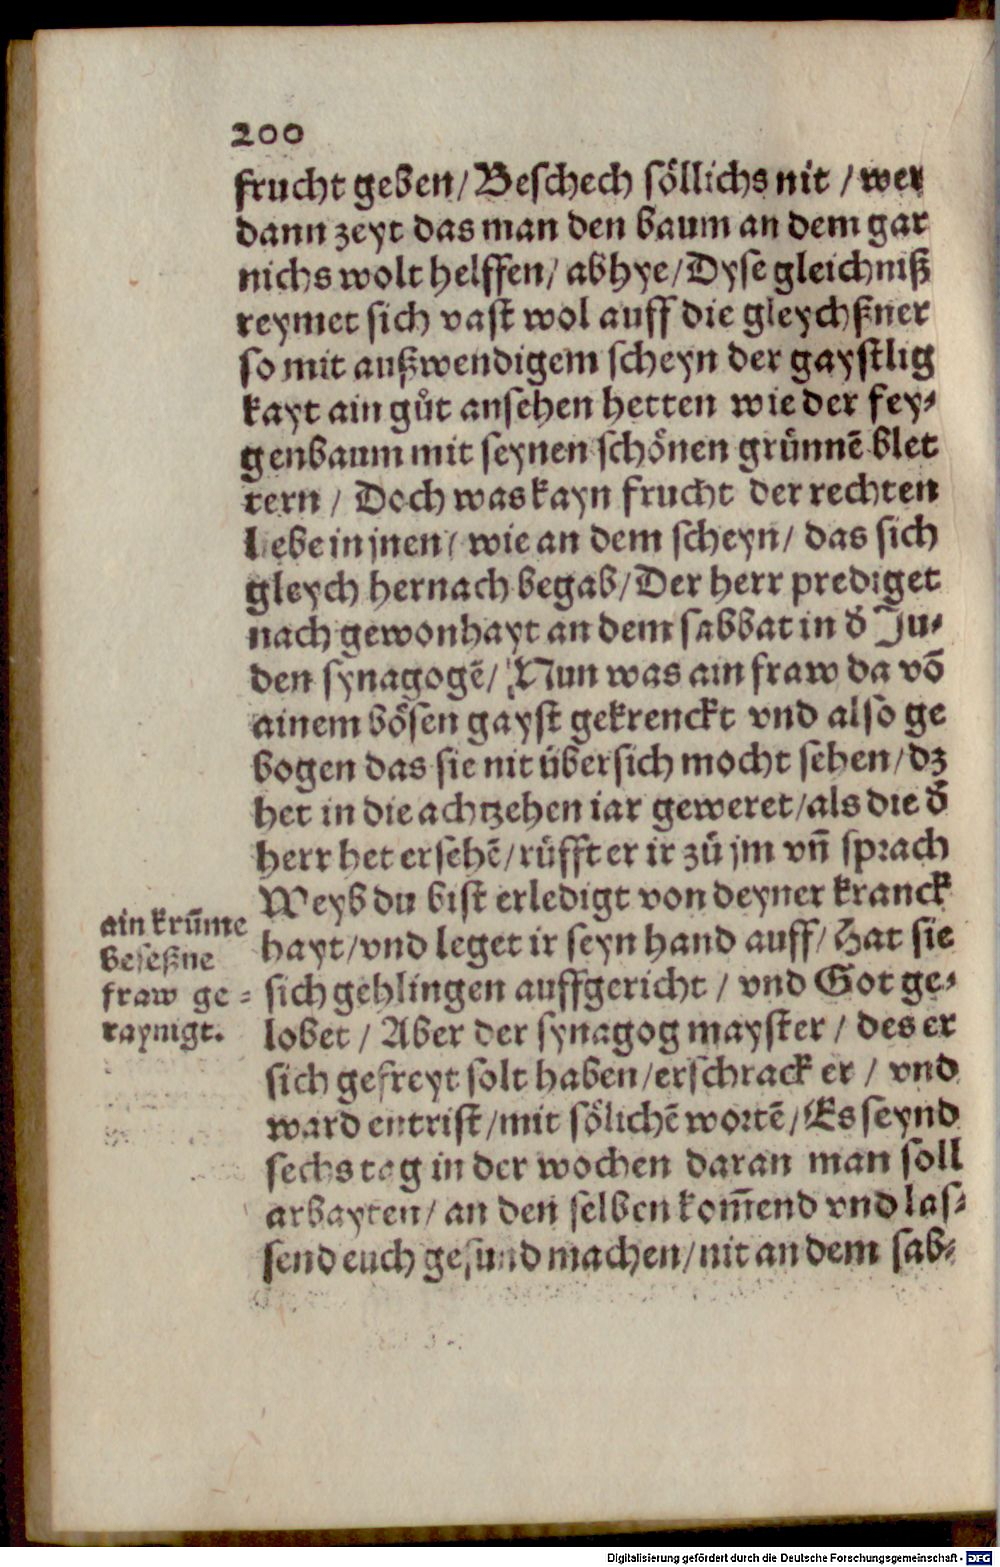 200
frucht geben/ Beschech söllichs nit / wer
dann zeyt das man den baum an dem gar
nichs wolt helffen/ abhye/ Dyse gleichniß
reymet sich vast wol auff die gleychßner
so mit außwendigem scheyn der gaystlig
kayt ain gůt ansehen hetten wie der fey⸗
genbaum mit seynen schönen grünnē blet
tern / Doch was kayn frucht der rechten
liebe in jnen/ wie an dem scheyn/ das sich
gleych hernach begab/ Der herr prediget
nach gewonhayt an dem sabbat in ð Ju⸗
den synagogē/ Nun was ain fraw da võ
ainem bösen gayst gekrenckt vnd also ge
bogen das sie nit übersich mocht sehen/ dz
het in die achtzehen iar geweret/ als die ð
herr het ersehē/ růfft er ir zů jm vñ sprach
Weyb du bist erledigt von deyner kranck
hayt/ vnd leget ir seyn hand auff/ Hat sie
sich gehlingen auffgericht / vnd Got ge⸗
lobet / Aber der synagog mayster / des er
sich gefreyt solt haben/ erschrack er / vnd
ward entrist/ mit sölichē wortē/ Es seynd
sechs tag in der wochen daran man soll
arbayten/ an den selben kom̄end vnd las⸗
send euch gesund machen/ nit an dem sab⸗
ain krūme
beseßne
fraw ge⸗
raynigt.
Digitalisierung gefördert durch die Deutsche Forschungsgemeinschaft - DFG